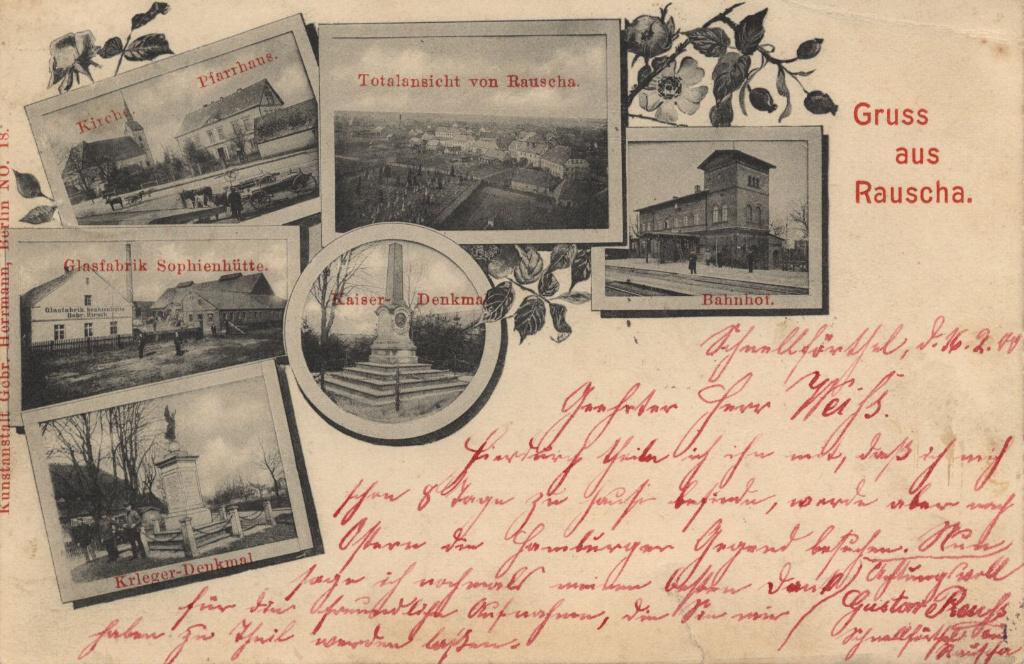 Kirche.
Pfarrhaus.
Totalansicht von Rauscha.
Gruss
aus
Rauscha.
Glasfabrik Sophienhütte.
Glasfabrik Sophienhütte
Gebr. Hirsch.
Kaiser-Denkmal
Bahnhof.
Krieger-Denkmal
Kunstanstalt Gebr. Herrmann, Berlin NO. 18.
Schnellförthel, d. 16.2.00
Geehrter Herr Weiß.
Hierdurch theile ich ihn mit, daß ich mich
schon 8 Tage zu Hause befinde, werde aber nach
Ostern die Hamburger Gegend besuchen. Nun
sage ich nochmals meinen besten Dank
für die freundliche Aufnahmen, die Sie mir
haben zu Theil werden lassen.
Achtungsvoll
Gustav
Schnellförthel
Rauscha